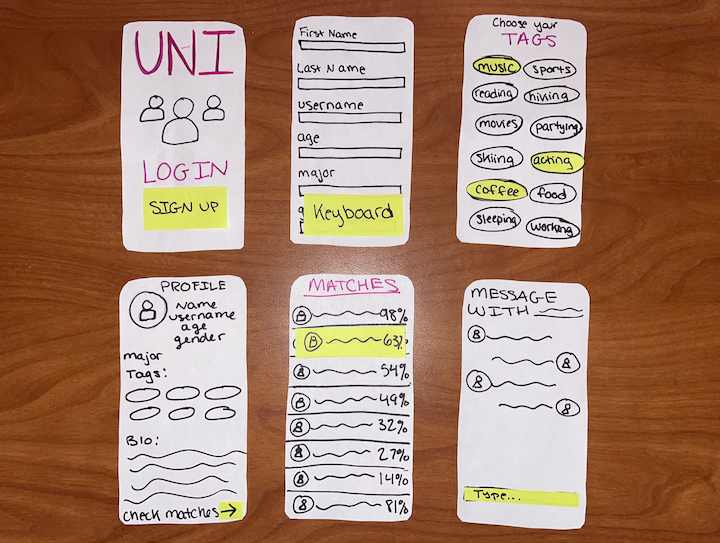 UNI
LOGIN
SIGN UP
First Name
Last Name
username
age
major
g
Keyboard
Choose your
TAGS
music sports
reading hiking
movies partying
skiing acting
coffee food
sleeping working
PROFILE
Name
username
age
gender
major
Tags:
Bio:
check matches →
MATCHES
98%
63%
54%
49%
32%
27%
14%
81%
MESSAGE
WITH
Type...